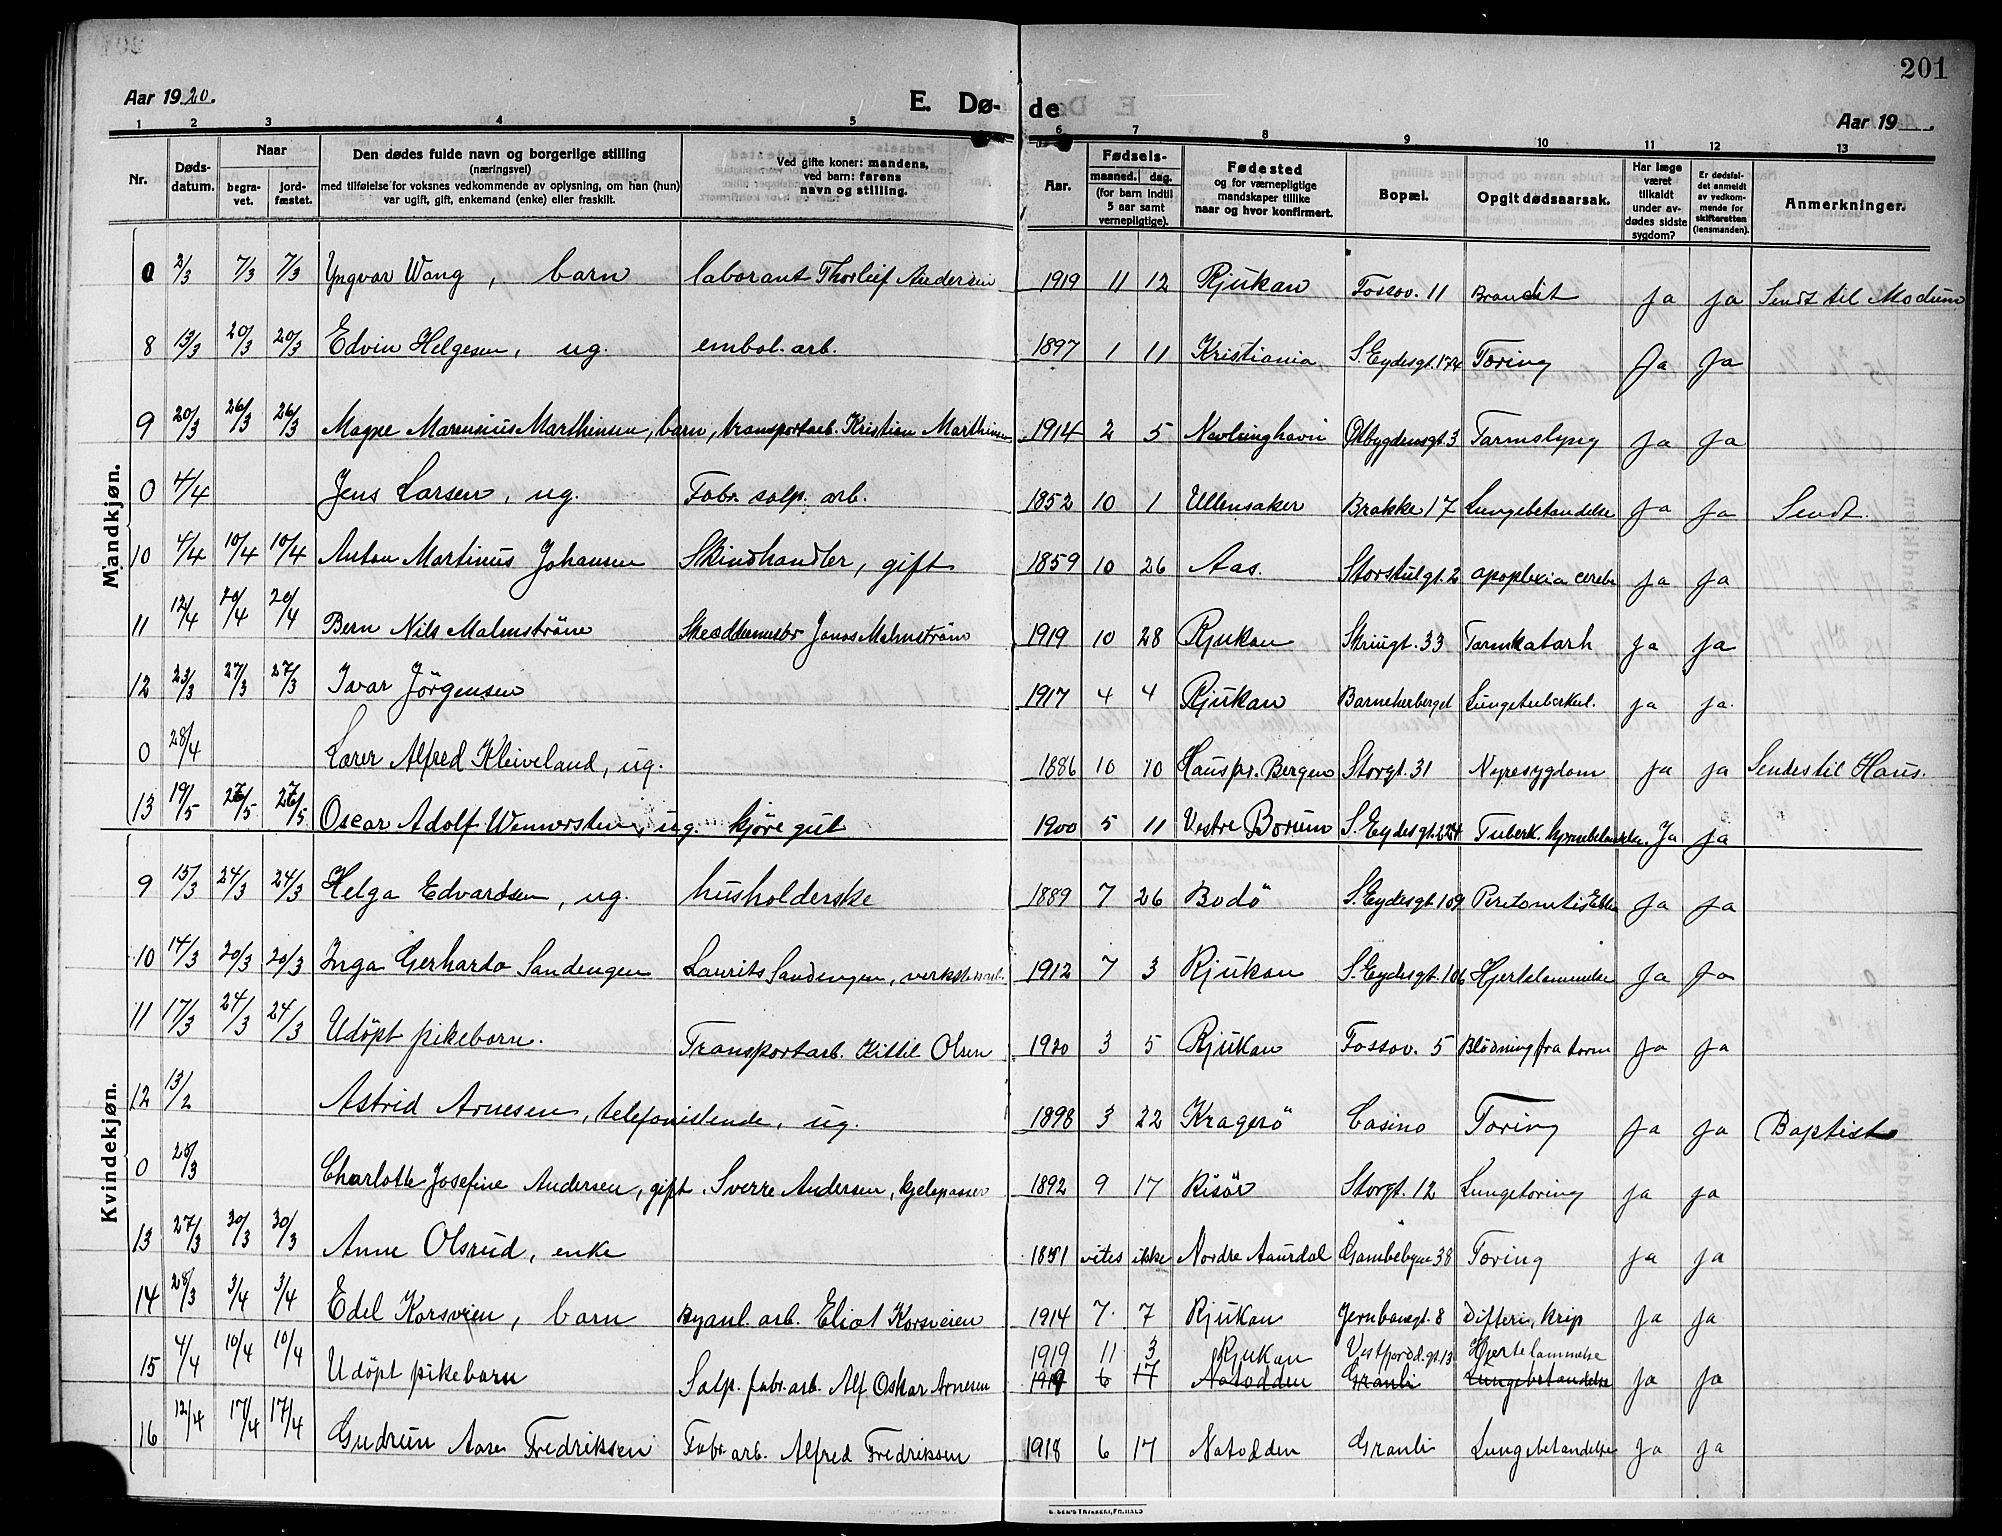 201
Aar 1920.
E. Dø- de
Aar 19
1 2 3 4 5 6 7 8 9 10 11 12 13
Nr.
Døds-datum.
Naar
begra-vet.
jord-fæstet.
Den dødes fulde navn og borgerlige stilling
(næringsvei)
med tilføielse for voksnes vedkommende av oplysning, om han (hun)
var ugift, gift, enkemand (enke) eller fraskilt.
Ved gifte koner: mandens,
ved barn: farens
navn og stilling.
Aar.
Fødsels-
maaned. dag.
(for barn indtil
5 aar samt
vernepligtige).
Fødested
og for værnepligtige
mandskaper tillike
naar og hvor konfirmert.
Bopæl.
Opgit dødsaarsak.
Har læge
været
tilkaldt
under av-
dødes sidste
sygdom?
Er dødsfal-
det anmeldt
av vedkom-
mende for
skifteretten
(lensmanden).
Anmerkninger.
Mandkjøn.
0 2/3 7/3 7/3 Yngvar Wang, barn laborant Thorleif Andersen 1919 11 12 Rjukan Fossov. 11 Brandet ja ja Sendt til Modum
8 13/3 20/3 20/3 Edvin Helgesen, ug. embal. arb. 1897 1 11 Kristiania S. Eydesgt. 174 Tæring Ja Ja
9 20/3 26/3 26/3 Magne Marensius Marthinsen, barn, transportarb. Kristian Marthinsen 1914 2 5 Nevlunghavn Østbygdensgt. 3 Tarmslyng ja ja
0 4/4 Jens Larsen, ug. Fabr. salp. arb. 1852 10 1 Ullensaker Brakke 17 Lungebetændelse ja ja Sendt.
10 4/4 10/4 10/4 Anton Martinus Johansen Skindhandler, gift 1859 10 26 Aas. Storstulgt. 2 apoplexia cerebr ja ja
11 12/4 20/4 20/4 Bern Nils Malmstrøne Skræddermestr Jonas Malmstrøm 1919 10 28 Rjukan Skriugt. 33 Tarmkatarh ja ja
12 23/3 27/3 27/3 Ivar Jörgensen 1917 4 4 Rjukan Barneherberget Lungetuberkul. ja ja.
0 28/4 Lærer Alfred Kleiveland, ug. 1886 10 10 Haus pr. Bergen Storgt. 31 Nyresygdom ja ja Sendes til Haus.
13 19/5 26/5 26/5 Oscar Adolf Wennersten, ug. kjøregut 1900 5 11 Vestre Bærum S. Eydesgt. 224 Tuberk. hjernebetændelse. Ja ja
Kvindekjøn.
9 15/3 24/3 24/3 Helga Edvardsen, ug. husholderske 1889 7 26 Bodö S. Eydesgt. 109 ja ja
10 14/3 20/3 20/3 Inga Gerharda Sandengen Laurits Sandengen, 1912 7 3 Rjukan S. Eydesgt. 106 Hjertelammelse ja ja
11 17/3 24/3 24/3 Udöpt pikebarn. Transportarb. Kittil Olsen 1920 3 5 Rjukan Fossov. 5 Blödning fra tarm ja ja
12 13/2 Astrid Arnesen, telefonistinde, ug. 1898 3 22 Kragerö Casino Tæring ja ja Baptist
0 25/3 Charlotte Josefine Andersen, gift. Sverre Andersen, kjelepasser 1892 9 17 Risör Storgt. 12 Lungetæring ja ja
13 27/3 30/3 30/3 Anne Olsrud, enke 1851 vites ikke Nordre Aurdal Gamlebyen 38 Tæring ja ja
14 28/3 3/4 3/4 Edel Korsvien, barn Byanl. arb. Eliot Korsveien 1914 7. 7 Rjukan Jernbanegt. 8 Difteri, krip ja ja
1919 11 3 Rjukan Vestfjordd. gt. 13 Hjertelammelse
15 4/4 10/4 10/4 Udöpt pikebarn Salp. fabr. arb. Alf Oskar Arnesen 1919 6 17 Notodden Grønli Lungebetændelse ja ja
16 12/4 17/4 17/4 Gudrun Aase Fredriksen Fabr arb. Alfred Fredriksen 1918 6 17 Notodden Grønli Lungebetændelse ja ja